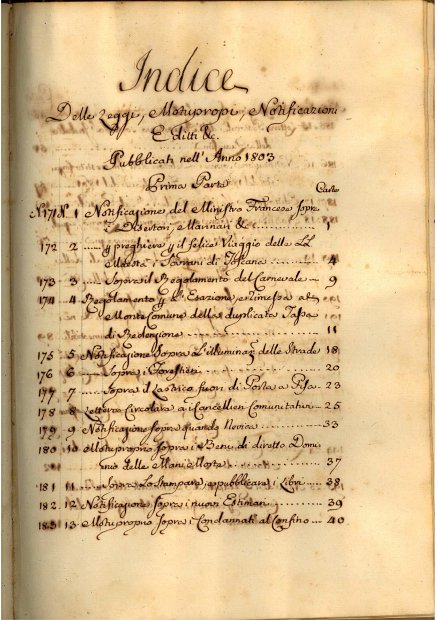 Indice
Delle Leggi, Motupropi, Notificazioni
Editti &c.
Pubblicati nell'Anno 1803
Prima Parte
Carte
N. 171 N. 1 Notificazione del Ministro Francese sopra
i Disertori, Marinari &c ............ 1
172 2 ..... p preghiere p il felice Viaggio delle LL
Maestà i Sovrani di Toscana ...... 4
173 3 ..... Sopra il Regolamento del Carnevale ... 9
174 4 Regolamento p L'Esazione, e rimessa al
Monte Comune della duplicata Tassa
di Redenzione ............ 11
175 5 Notificazione Sopra L'illuminaz. delle Strade 18
176 6 ..... Sopra i Forestieri ............ 20
177 7 ..... Sopra il Lastrico fuori di Porta a Pisa .. 23
178 8 Lettera Circolare a i Cancellieri Comunitativi .. 25
179 9 Notificazione sopra quando Nevica ........ 33
180 10 Motuproprio sopra i Beni di diretto Domi
nio delle Mani Morte ............ 37
181 11 ..... Sopra Lo Stampare, e pubblicare i Libri .... 38
182 12 Notificazione Sopra i nuovi Estimari ...... 39
183 13 Motuproprio Sopra i Condannati al Confino ... 40